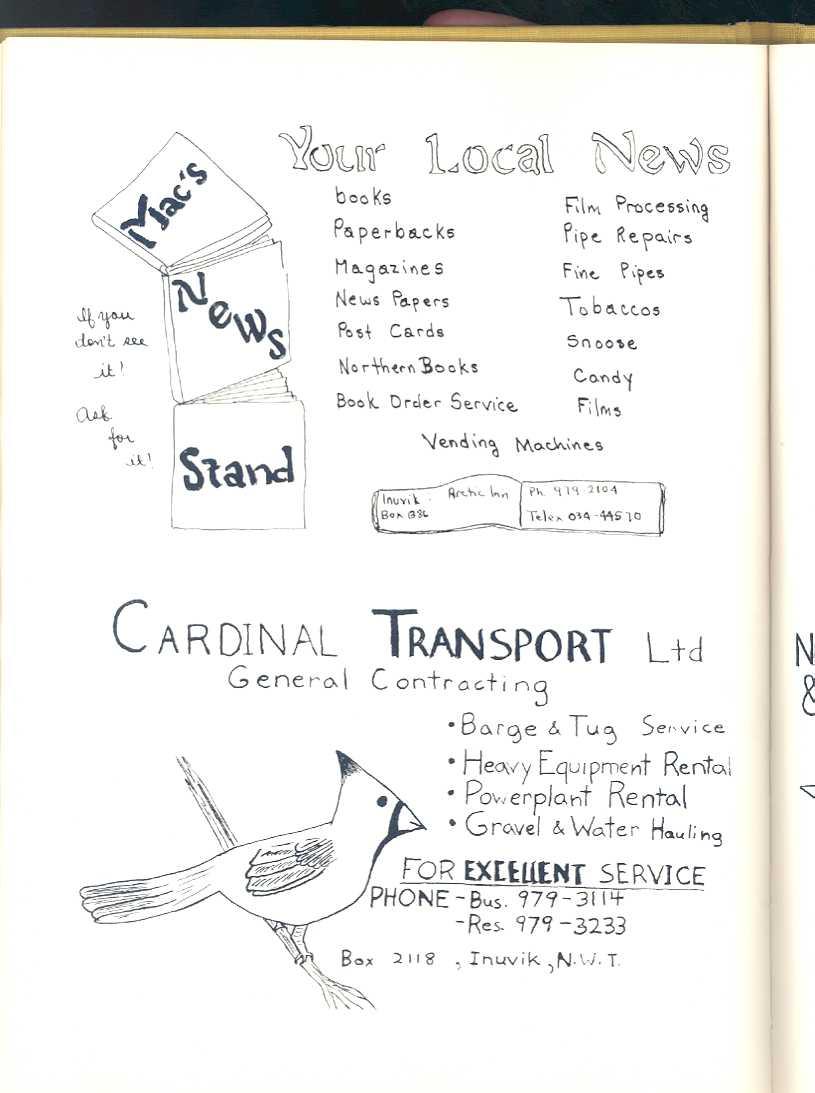 Your Local News
Mac's
News
Stand
If you
don't see
it!
Ask
for
it!
books
Paperbacks
Magazines
News Papers
Post Cards
Northern Books
Book Order Service
Film Processing
Pipe Repairs
Fine Pipes
Tobaccos
Snoose
Candy
Films
Vending Machines
Inuvik : Arctic Inn
Box 1386
Ph. 979-2104
Telex 034-44570
CARDINAL TRANSPORT Ltd
General Contracting
• Barge & Tug Service
• Heavy Equipment Rental
• Powerplant Rental
• Gravel & Water Hauling
FOR EXCELLENT SERVICE
PHONE - Bus. 979-3114
- Res. 979-3233
Box 2118 , Inuvik, N.W.T.
N
&